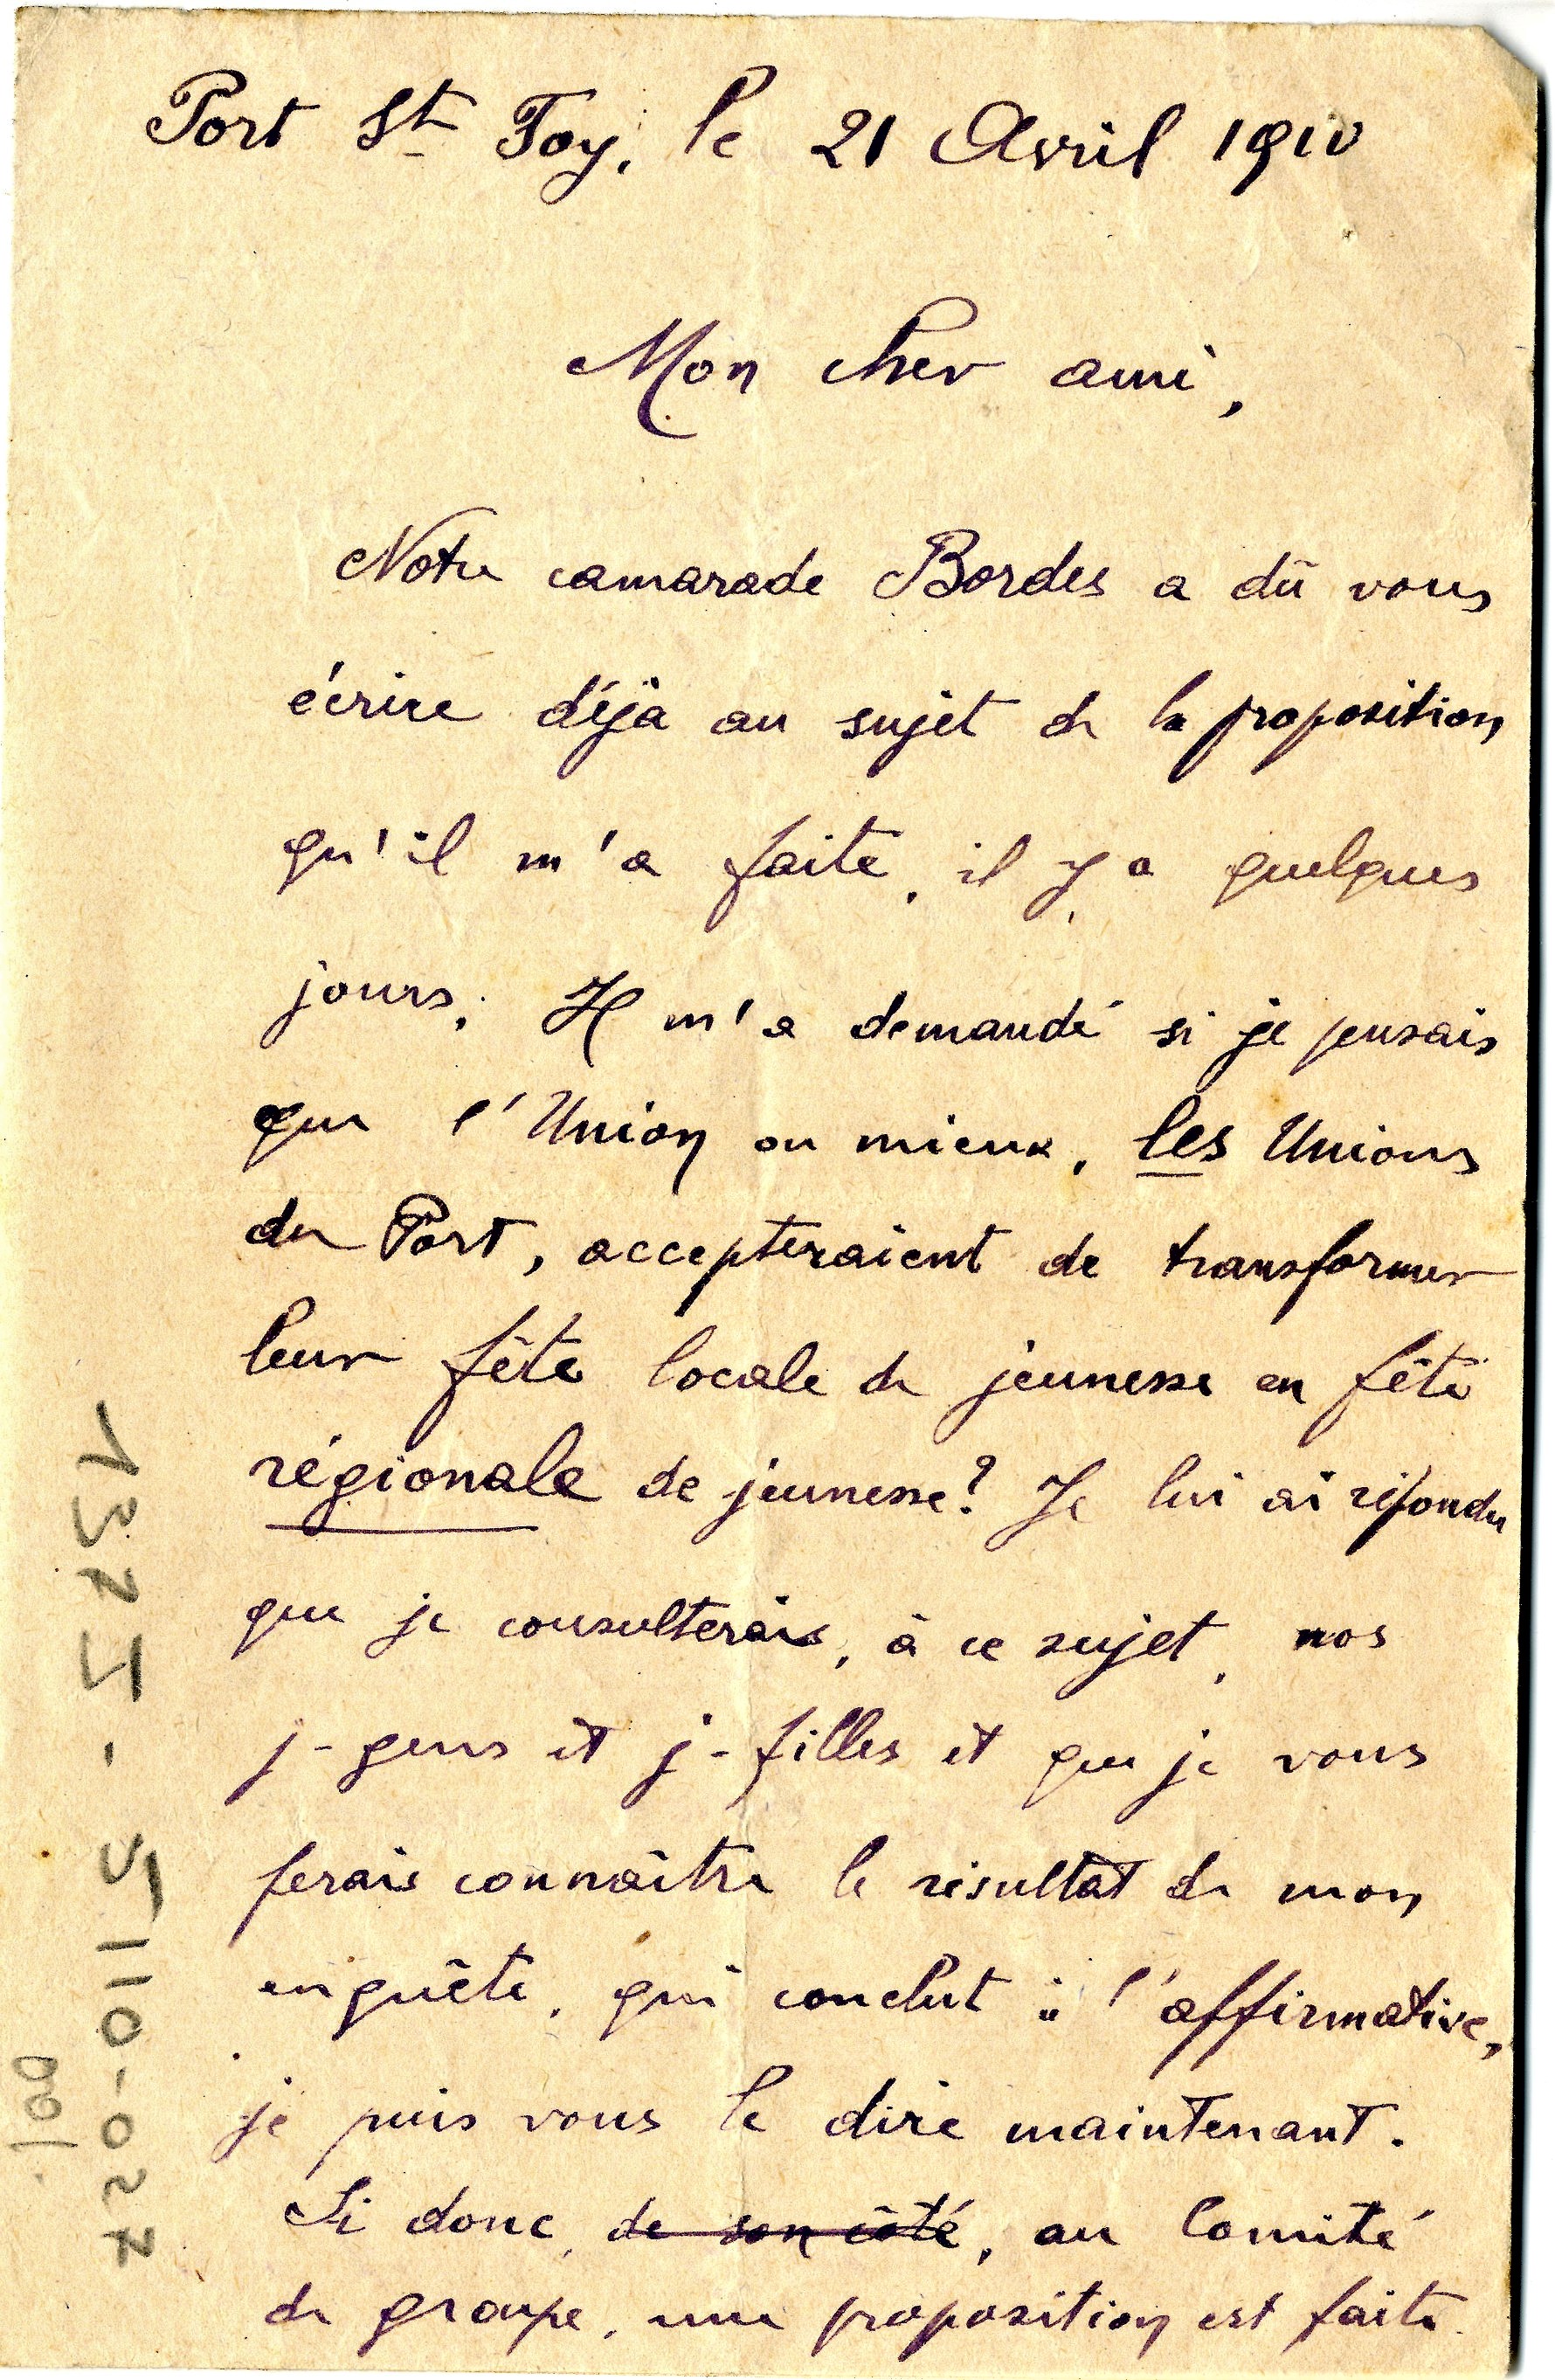 Port Ste Foy, le 21 Avril 1910
Mon cher ami,
Notre camarade Bordes a dû vous
écrire déjà au sujet de la proposition
qu'il m'a faite, il y a quelques
jours. Il m'a demandé si je pensais
que l'Union ou mieux, les Unions
de Port, accepteraient de transformer
leur fête locale de jeunesse en fête
régionale de jeunesse? Je lui ai répondu
que je consulterais, à ce sujet, nos
j-gens et j-filles et que je vous
ferais connaître le résultat de mon
enquête, qui conclut à l'affirmative,
je puis vous le dire maintenant.
Si donc, de son côté, au Comité
de groupe, une proposition est faite